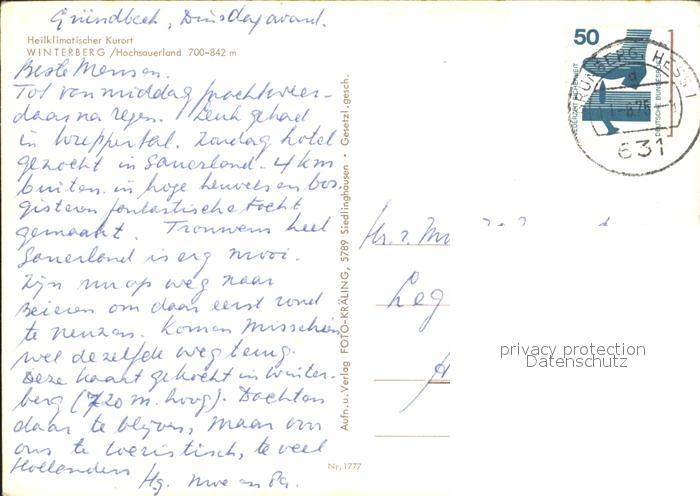 Gründbeek, Dinsdagavond.
Heilklimatischer Kurort
WINTERBERG /Hochsauerland 700-842 m
Beste Mensen.
Tot vanmiddag prachtweer-
daarna regen. Leuk gehad
in Wuppertal. Zondag hotel
gezocht in Sauerland. 4 km
buiten in hoge heuvels en bos
gisteren fantastische tocht
gemaakt. Trouwens heel
Sauerland is erg mooi.
Zijn nu op weg naar
Beieren om daar eerst rond
te neuzen. Komen misschien
wel dezelfde weg terug.
Deze kaart gekocht in Winter-
berg (720 m. hoog). Dachten
daar te blijven, maar von
ons te toeristisch, te veel
Hollanders
Hg. Moe en Pa.
Aufn. u. Verlag FOTO-KRÄLING, 5789 Siedlinghausen • Gesetzl. gesch.
Nr. 1777
50
JEDERZEIT SICHERHEIT
DEUTSCHE BUNDESPOST
HESS 1
631
Leg
H
privacy protection
Datenschutz